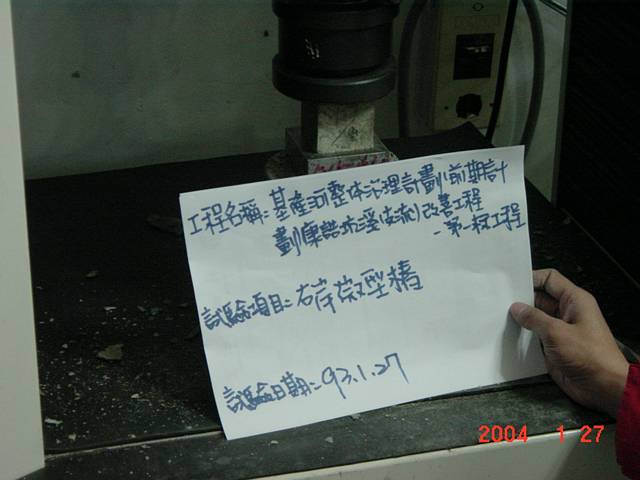 工程名稱:基隆河整体治理計劃前期計
劃康誥坑溪(支流)改善工程
-第一標工程
試驗項目:右岸懸型墻
試驗日期:93.1.27
2004 1 27